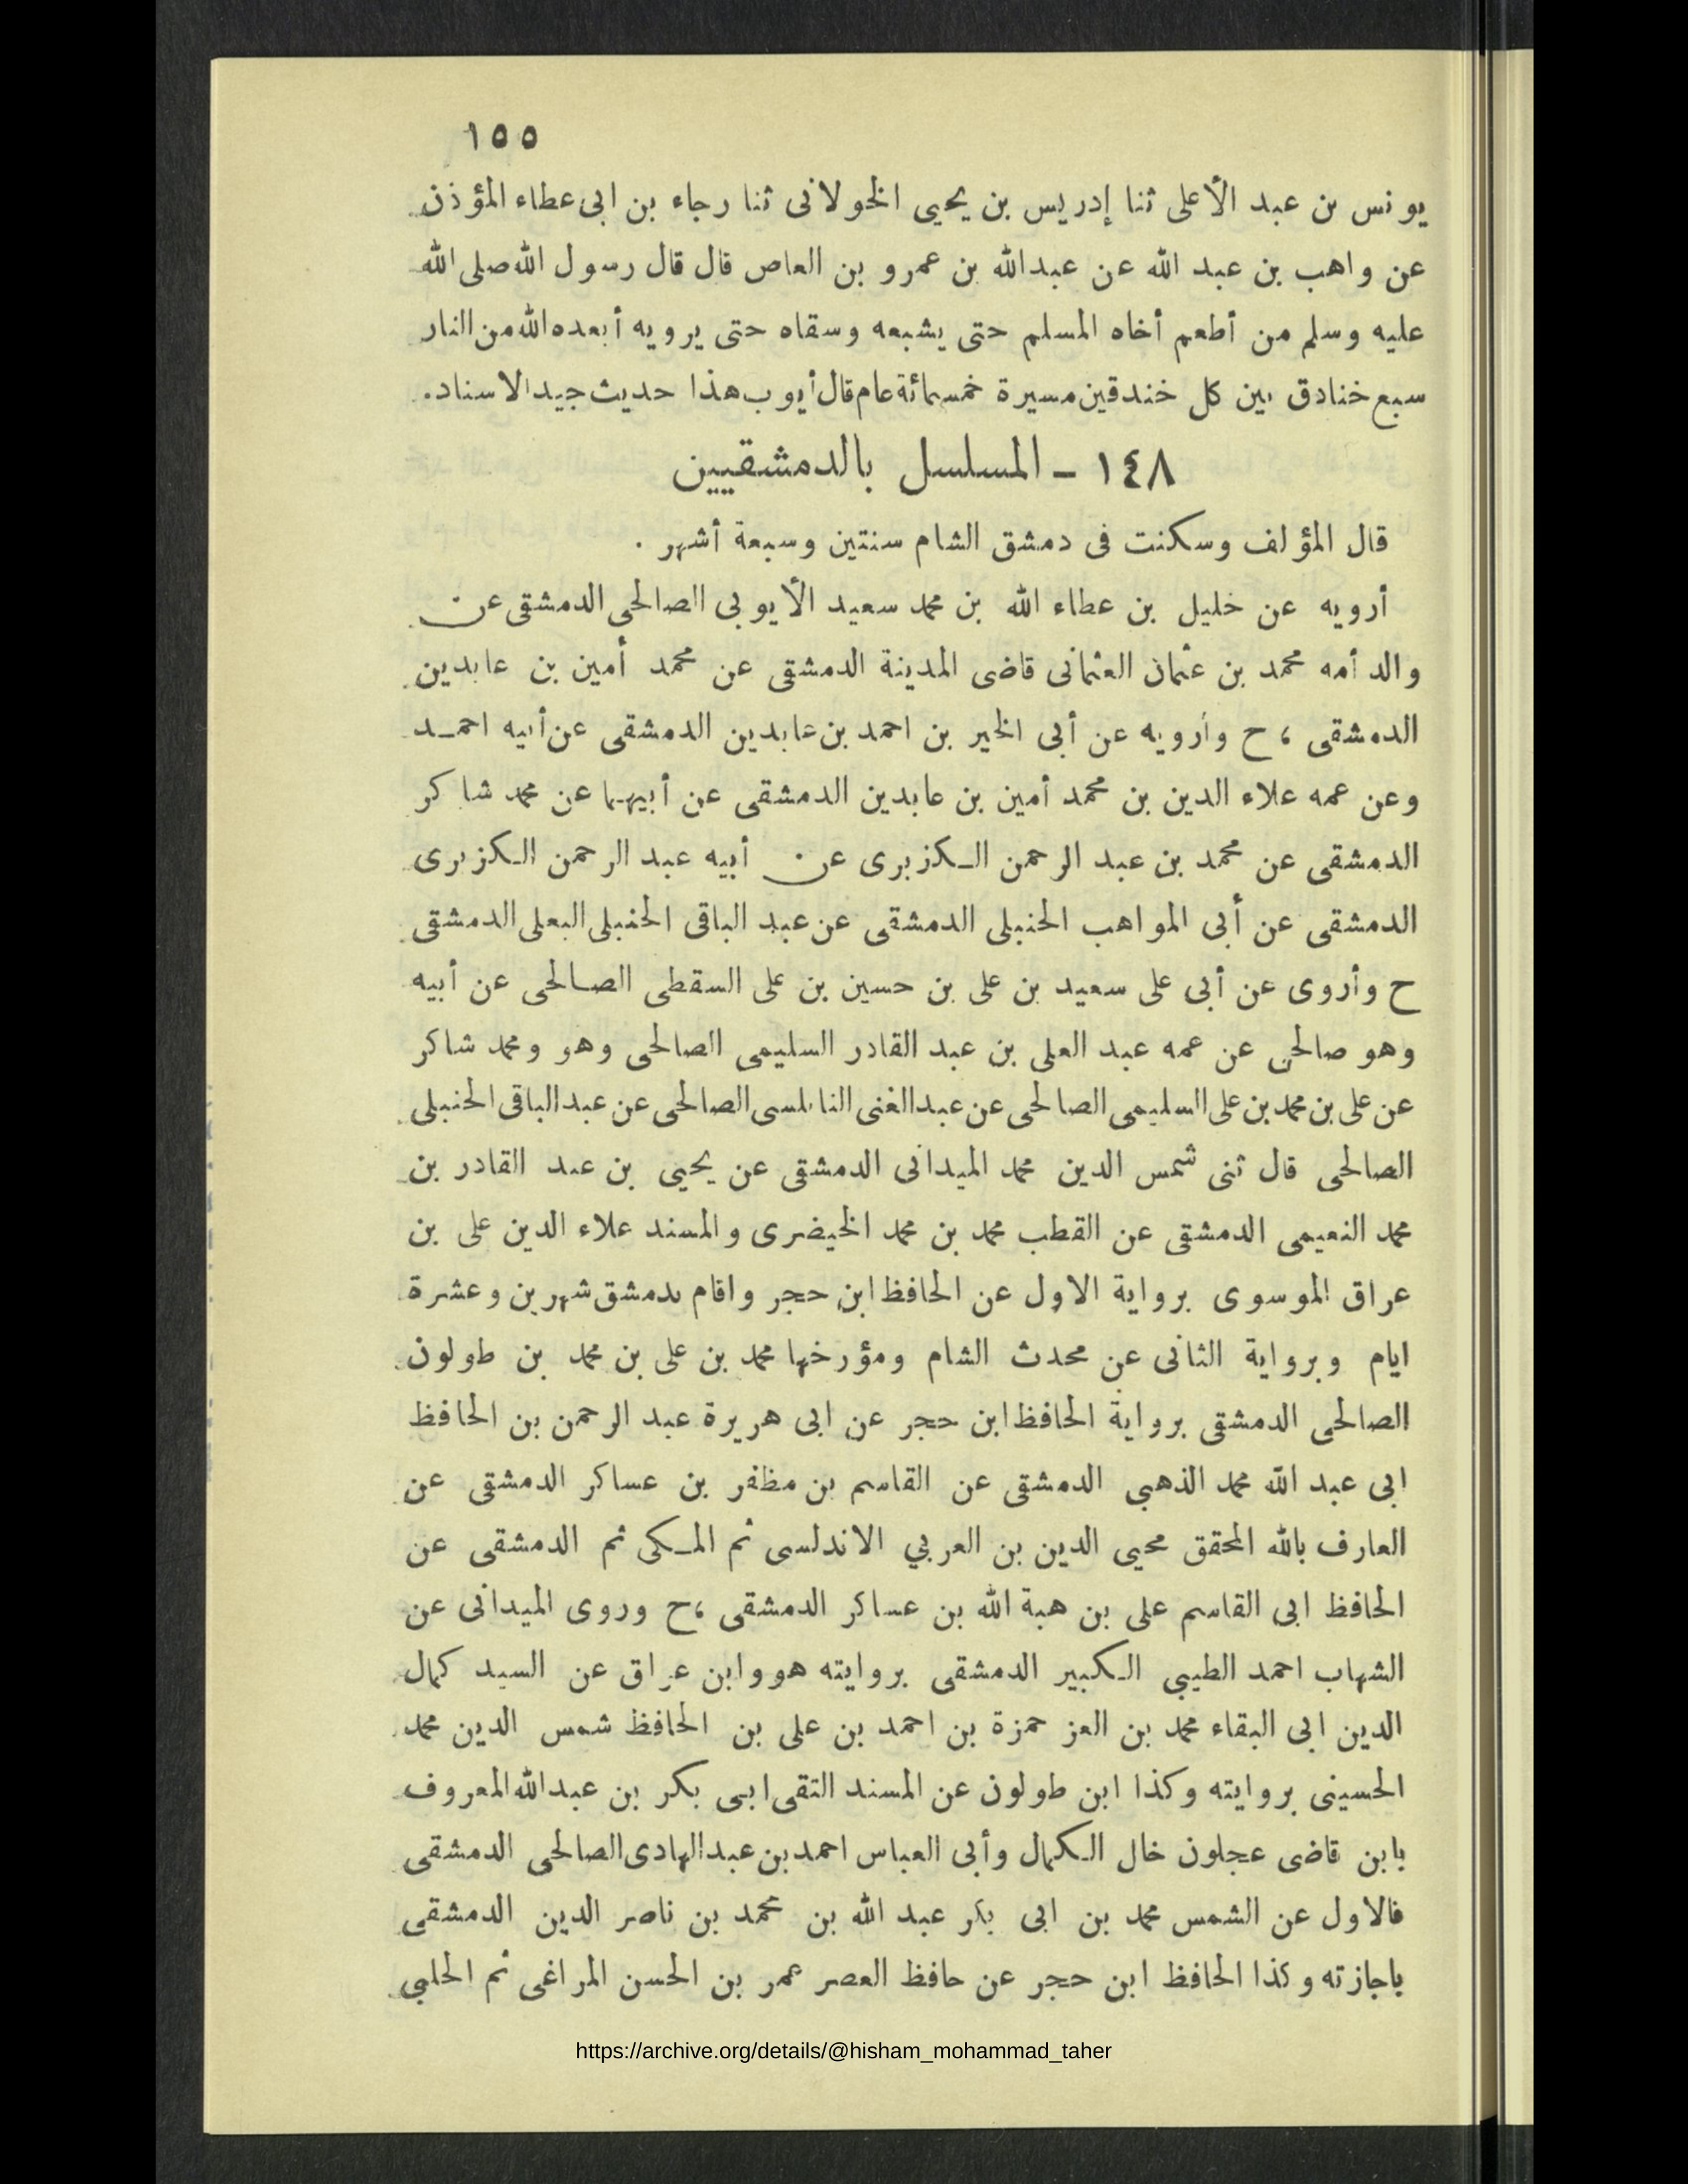 ١٥٥
يونس بن عبد الأعلى ثنا إدريس بن يحيى الخولانى ثنا رجاء بن ابى عطاء المؤذن
عن واهب بن عبد الله عن عبدالله بن عمرو بن العاص قال قال رسول الله صلى الله
عليه وسلم من أطعم أخاه المسلم حتى يشبعه وسقاه حتى يرويه أبعده الله من النار
سبع خنادق بين كل خندقين مسيرة خمسمائة عام قال أيوب هذا حديث جيد الاسناد.
١٤٨ – المسلسل بالدمشقيين
قال المؤلف وسكنت فى دمشق الشام سنتين وسبعة أشهر .
أرويه عن خليل بن عطاء الله بن محمد سعيد الأيوبى الصالحى الدمشقى عن
والد أمه محمد بن عثمان العثمانى قاضى المدينة الدمشقى عن محمد أمين بن عابدين
الدمشقى ، ح وأرويه عن أبى الخير بن احمد بن عابدين الدمشقى عن أبيه احمد
وعن عمه علاء الدين بن محمد أمين بن عابدين الدمشقى عن أبيهما عن محمد شاكر
الدمشقى عن محمد بن عبد الرحمن الكزبرى عن أبيه عبد الرحمن الكزبرى
الدمشقى عن أبى المواهب الحنبلى الدمشقى عن عبد الباقى الحنبلى البعلى الدمشقى
ح وأروى عن أبى على سعيد بن على بن حسين بن على السقطى الصالحى عن أبيه
وهو صالحى عن عمه عبد العلى بن عبد القادر السليمى الصالحى وهو ومحمد شاكر
عن على بن محمد بن على السليمى الصالحى عن عبد الغنى النابلسى الصالحى عن عبد الباقى الحنبلى
الصالحى قال ثنى شمس الدين محمد الميدانى الدمشقى عن يحيى بن عبد القادر بن
محمد النعيمى الدمشقى عن القطب محمد بن محمد الخيضرى والمسند علاء الدين على بن
عراق الموسوى برواية الاول عن الحافظ ابن حجر واقام بدمشق شهرين وعشرة
ايام وبرواية الثانى عن محدث الشام ومؤرخها محمد بن على بن محمد بن طولون
الصالحى الدمشقى برواية الحافظ ابن حجر عن ابى هريرة عبد الرحمن بن الحافظ
ابى عبد الله محمد الذهبي الدمشقى عن القاسم بن مظفر بن عساكر الدمشقى عن
العارف بالله المحقق محيى الدين بن العربي الاندلسى ثم المكى ثم الدمشقى عن
الحافظ ابى القاسم على بن هبة الله بن عساكر الدمشقى ،ح وروى الميدانى عن
الشهاب احمد الطيبي الكبير الدمشقى بروايته هو وابن عراق عن السيد كمال
الدين ابى البقاء محمد بن العز حمزة بن احمد بن على بن الحافظ شمس الدين محمد
الحسينى بروايته وكذا ابن طولون عن المسند التقى ابى بكر بن عبدالله المعروف
بابن قاضى عجلون خال الكمال وأبى العباس احمد بن عبد الهادى الصالحى الدمشقى
فالاول عن الشمس محمد بن ابى بكر عبد الله بن محمد بن ناصر الدين الدمشقى
باجازته وكذا الحافظ ابن حجر عن حافظ العصر عمر بن الحسن المراغى ثم الحلبي
https://archive.org/details/@hisham_mohammad_taher